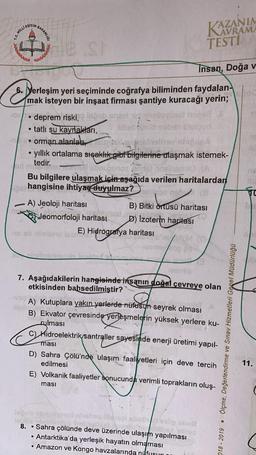 T.C. MİLLÎ EĞİTİM BAKANLIĞI
KAZANIM
KAVRAMA
TESTİ
İnsan, Doğa v
6. Yerleşim yeri seçiminde coğrafya biliminden faydalan-
mak isteyen bir inşaat firması şantiye kuracağı yerin;
• deprem riski,
• tatlı su kaynakları,
• orman alanları,
• yıllık ortalama sıcaklık gibi bilgilerine ulaşmak istemek-
tedir.
Bu bilgilere ulaşmak için aşağıda verilen haritalardan
hangisine ihtiyaç duyulmaz?
A) Jeoloji haritası
B) Bitki örtüsü haritası
C) Jeomorfoloji haritası
D) İzoterm haritası
E) Hidrografya haritası
7. Aşağıdakilerin hangisinde insanın doğal çevreye olan
etkisinden bahsedilmiştir?
A) Kutuplara yakın yerlerde nüfusun seyrek olması
B) Ekvator çevresinde yerleşmelerin yüksek yerlere ku-
rulması
C) Hidroelektrik santraller sayesinde enerji üretimi yapıl-
ması
D) Sahra Çölü'nde ulaşım faaliyetleri için deve tercih
edilmesi
E) Volkanik faaliyetler sonucunda verimli toprakların oluş-
ması
8. • Sahra çölünde deve üzerinde ulaşım yapılması
• Antarktika'da yerleşik hayatın olmaması
• Amazon ve Kongo havzalarında
11.
18 - 2019 • Ölçme, Değerlendirme ve Sınav Hizmetleri Genel Müdürlüğü